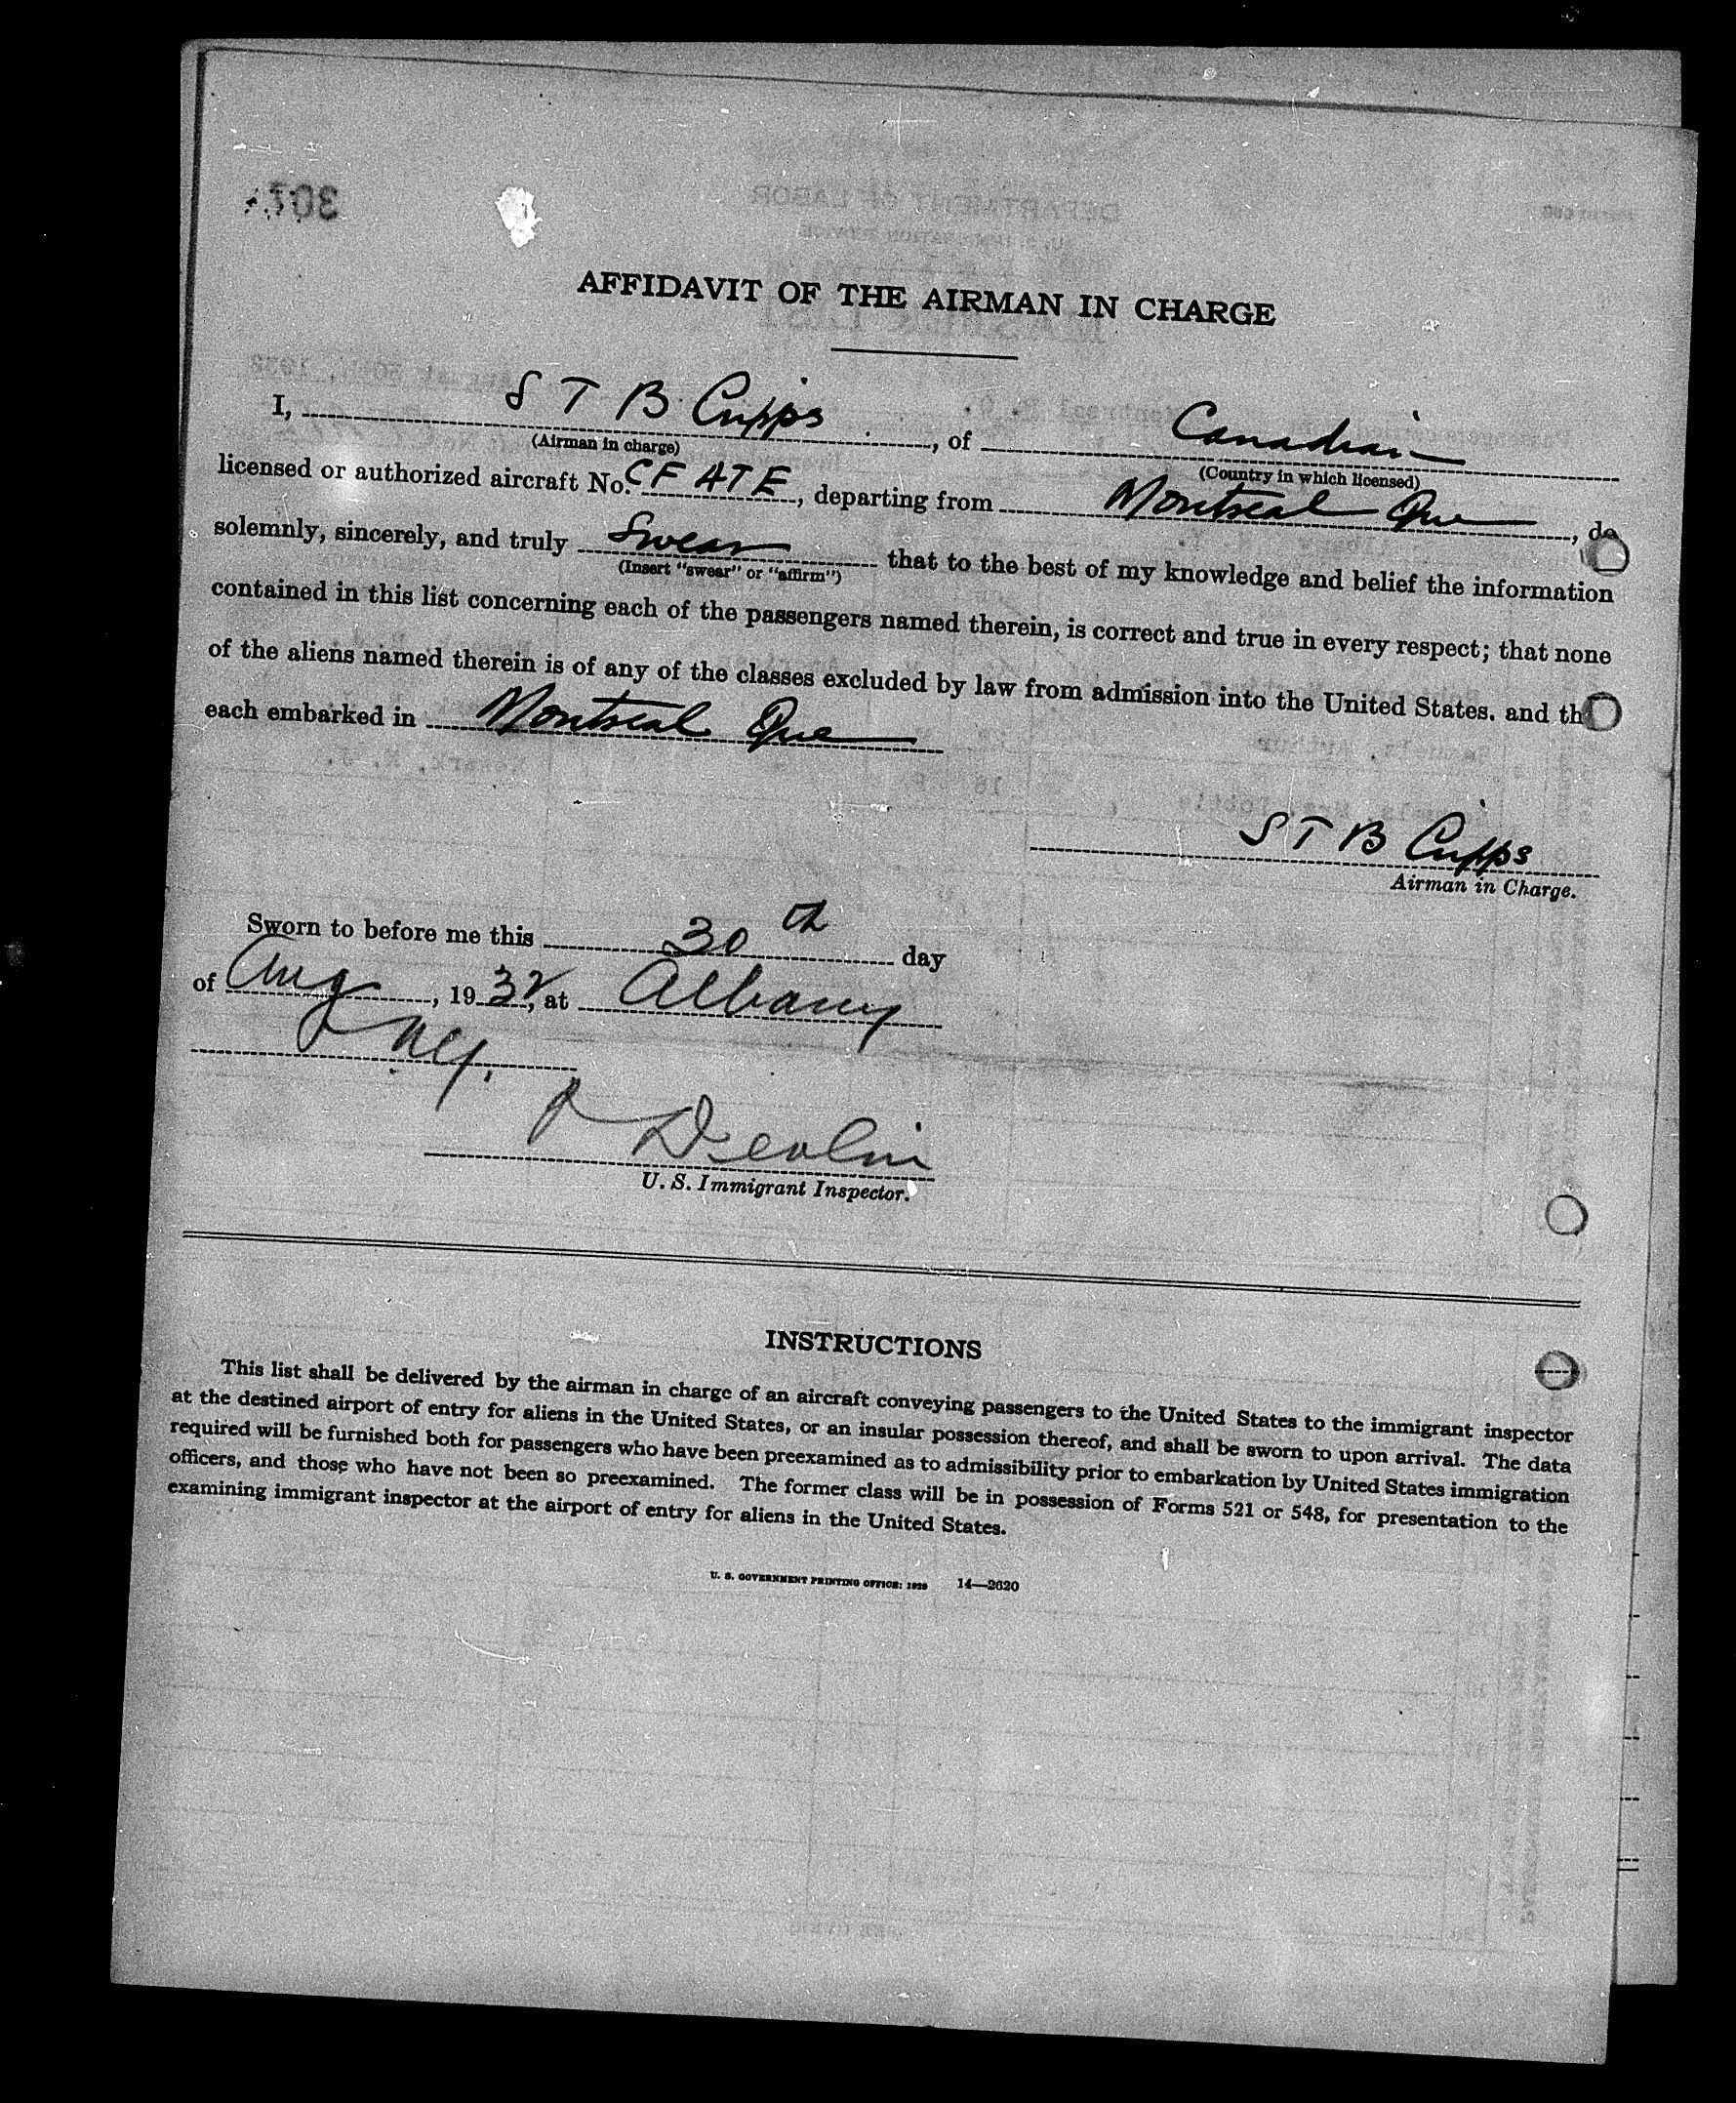 AFFIDAVIT OF THE AIRMAN IN CHARGE
I, S T B Cripps, of Canadian
(Airman in charge) (Country in which licensed)
licensed or authorized aircraft No. CF ATE, departing from Montreal Que, do
solemnly, sincerely, and truly Swear that to the best of my knowledge and belief the information
(Insert "swear" or "affirm")
contained in this list concerning each of the passengers named therein, is correct and true in every respect; that none
of the aliens named therein is of any of the classes excluded by law from admission into the United States. and th
each embarked in Montreal Que
S T B Cripps
Airman in Charge.
Sworn to before me this 30th day
of Aug, 1932, at Albany
NY.
Devlin
U. S. Immigrant Inspector.
INSTRUCTIONS
This list shall be delivered by the airman in charge of an aircraft conveying passengers to the United States to the immigrant inspector
at the destined airport of entry for aliens in the United States, or an insular possession thereof, and shall be sworn to upon arrival. The data
required will be furnished both for passengers who have been preexamined as to admissibility prior to embarkation by United States immigration
officers, and those who have not been so preexamined. The former class will be in possession of Forms 521 or 548, for presentation to the
examining immigrant inspector at the airport of entry for aliens in the United States.
U. S. GOVERNMENT PRINTING OFFICE: 1929 14—2620